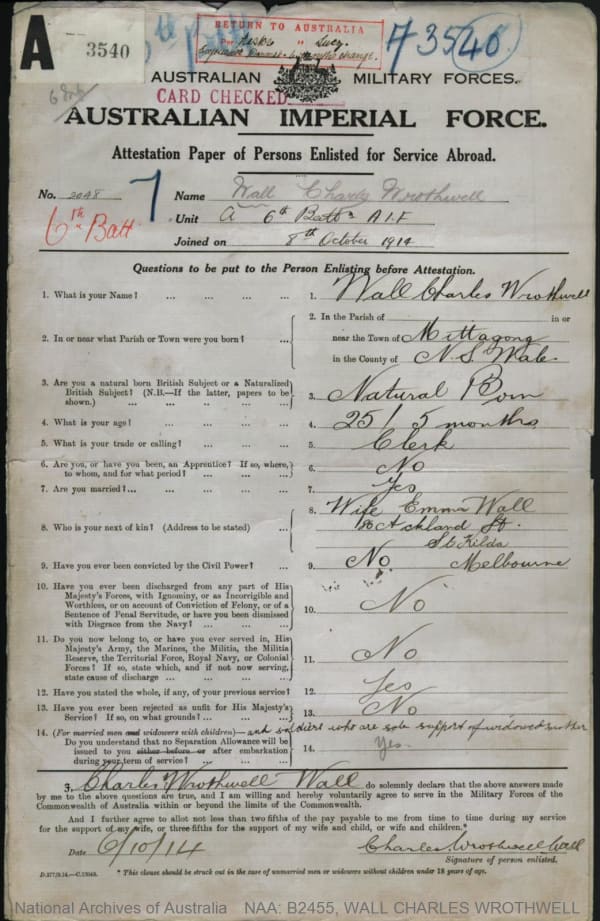 RETURN TO AUSTRALIA
A
3540
3540
AUSTRALIAN MILITARY FORCES.
CARD CHECKED
AUSTRALIAN IMPERIAL FORCE.
Attestation Paper of Persons Enlisted for Service Abroad.
No. 2048 Name Wall Charles Wrothwell
6th Batt Unit A 6th Battn A.I.F
Joined on 8th October 1914
Questions to be put to the Person Enlisting before Attestation.
1. What is your Name? ... ... ... 1. Wall Charles Wrothwell
2. In or near what Parish or Town were you born? ... 2. In the Parish of in or
near the Town of Mittagong
in the County of N.S Wale.
3. Are you a natural born British Subject or a Naturalized
British Subject? (N.B.—If the latter, papers to be
shown.) ... ... ... ... 3. Natural Born
4. What is your age? ... ... ... 4. 25 / 5 months
5. What is your trade or calling? ... ... ... 5. Clerk
6. Are you, or have you been, an Apprentice? If so, where,
to whom, and for what period? ... ... ... 6. No
7. Are you married?... ... ... ... 7. Yes
8. Who is your next of kin? (Address to be stated) ... 8. Wife Emma Wall
Ackland St.
St Kilda
Melbourne
9. Have you ever been convicted by the Civil Power? ... 9. No
10. Have you ever been discharged from any part of His
Majesty's Forces, with Ignominy, or as Incorrigible and
Worthless, or on account of Conviction of Felony, or of a
Sentence of Penal Servitude, or have you been dismissed
with Disgrace from the Navy? ... ... ... 10. No
11. Do you now belong to, or have you ever served in, His
Majesty's Army, the Marines, the Militia, the Militia
Reserve, the Territorial Force, Royal Navy, or Colonial
Forces? If so, state which, and if not now serving,
state cause of discharge ... ... ... 11. No
12. Have you stated the whole, if any, of your previous service? 12. Yes
13. Have you ever been rejected as unfit for His Majesty's
Service? If so, on what grounds? ... ... 13. No
14. (For married men and widowers with children)— and soldiers who are sole support of widowed mother
Do you understand that no Separation Allowance will be
issued to you either before or after embarkation
during your term of service? ... ... 14. Yes.
I, Charles Wrothwell Wall do solemnly declare that the above answers made
by me to the above questions are true, and I am willing and hereby voluntarily agree to serve in the Military Forces of the
Commonwealth of Australia within or beyond the limits of the Commonwealth.
And I further agree to allot not less than two-fifths of the pay payable to me from time to time during my service
for the support of my wife, or three-fifths for the support of my wife and child, or wife and children.*
Date 6/10/14 Charles Wrothwell Wall
Signature of person enlisted.
* This clause should be struck out in the case of unmarried men or widowers without children under 18 years of age.
National Archives of Australia NAA: B2455, WALL CHARLES WROTHWELL